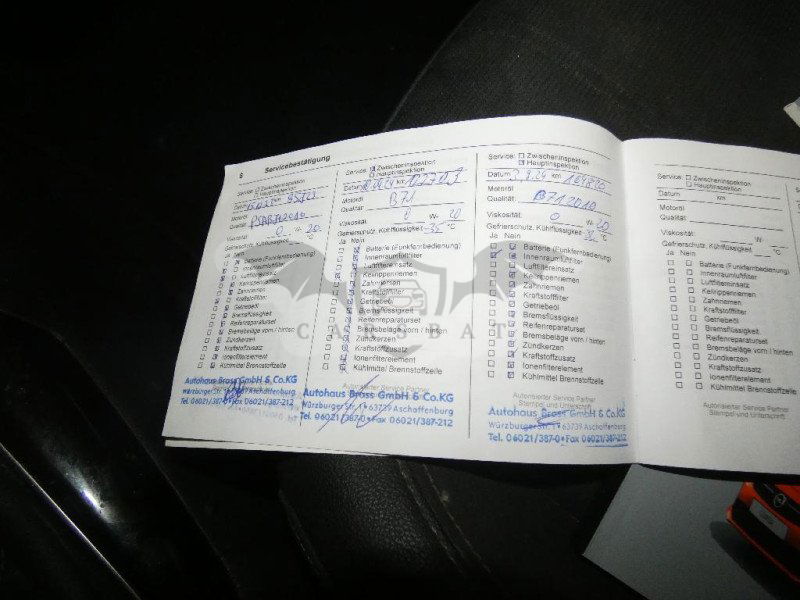 6 Servicebestätigung
Service: Zwischeninspektion
Hauptinspektion
Datum km
Motoröl
Qualität:
Viskosität: 0 W- 20
Gefrierschutz, Kühlflüssigkeit °C
Ja Nein
Batterie (Funkfernbedienung)
Innenraumluftfilter
Luftfiltereinsatz
Keilrippenriemen
Zahnriemen
Kraftstofffilter
Getriebeöl
Bremsflüssigkeit
Reifenreparaturset
Bremsbeläge vorn / hinten
Zündkerzen
Kraftstoffzusatz
Ionenfilterelement
Kühlmittel Brennstoffzelle
Autohaus Brass GmbH & Co.KG
Würzburger Str. 1 • 63739 Aschaffenburg
Tel. 06021/387-0 • Fax 06021/387-212
Service: Zwischeninspektion
Hauptinspektion
Datum km
Motoröl B71
Qualität:
Viskosität: 0 W- 20
Gefrierschutz, Kühlflüssigkeit -35 °C
Ja Nein
Batterie (Funkfernbedienung)
Innenraumluftfilter
Luftfiltereinsatz
Keilrippenriemen
Zahnriemen
Kraftstofffilter
Getriebeöl
Bremsflüssigkeit
Reifenreparaturset
Bremsbeläge vorn / hinten
Zündkerzen
Kraftstoffzusatz
Ionenfilterelement
Kühlmittel Brennstoffzelle
Autorisierter Service Partner
Autohaus Brass GmbH & Co.KG
Würzburger Str. 1 • 63739 Aschaffenburg
Tel. 06021/387-0 • Fax 06021/387-212
Service: Zwischeninspektion
Hauptinspektion
Datum 3.9.24 km
Motoröl
Qualität: B71 2010
Viskosität: 0 W- 20
Gefrierschutz, Kühlflüssigkeit °C
Ja Nein
Batterie (Funkfernbedienung)
Innenraumluftfilter
Luftfiltereinsatz
Keilrippenriemen
Zahnriemen
Kraftstofffilter
Getriebeöl
Bremsflüssigkeit
Reifenreparaturset
Bremsbeläge vorn / hinten
Zündkerzen
Kraftstoffzusatz
Ionenfilterelement
Kühlmittel Brennstoffzelle
Autorisierter Service Partner
Stempel und Unterschrift
Autohaus Brass GmbH & Co.KG
Würzburger Str. 1 • 63739 Aschaffenburg
Tel. 06021/387-0 • Fax 06021/387-212
Service: Zwischeninspektion
Hauptinspektion
Datum km
Motoröl
Qualität:
Viskosität: W-
Gefrierschutz, Kühlflüssigkeit °C
Ja Nein
Batterie (Funkfernbedienung)
Innenraumluftfilter
Luftfiltereinsatz
Keilrippenriemen
Zahnriemen
Kraftstofffilter
Getriebeöl
Bremsflüssigkeit
Reifenreparaturset
Bremsbeläge vorn / hinten
Zündkerzen
Kraftstoffzusatz
Ionenfilterelement
Kühlmittel Brennstoffzelle
Autorisierter Service Partner
Stempel und Unterschrift
CARSBAT